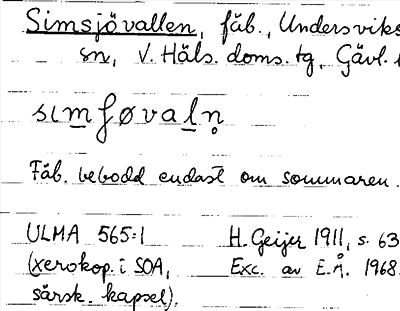 Simsjövallen, fäb., Undersviks
sn, V. Häls. doms. tg, Gävl.
Fäb. bebodd endast om sommaren.
ULMA 565:1 H. Geijer 1911, s. 63
(xerokop. i SOA, Exc. av E.Å. 1968.
särsk. kapsel).